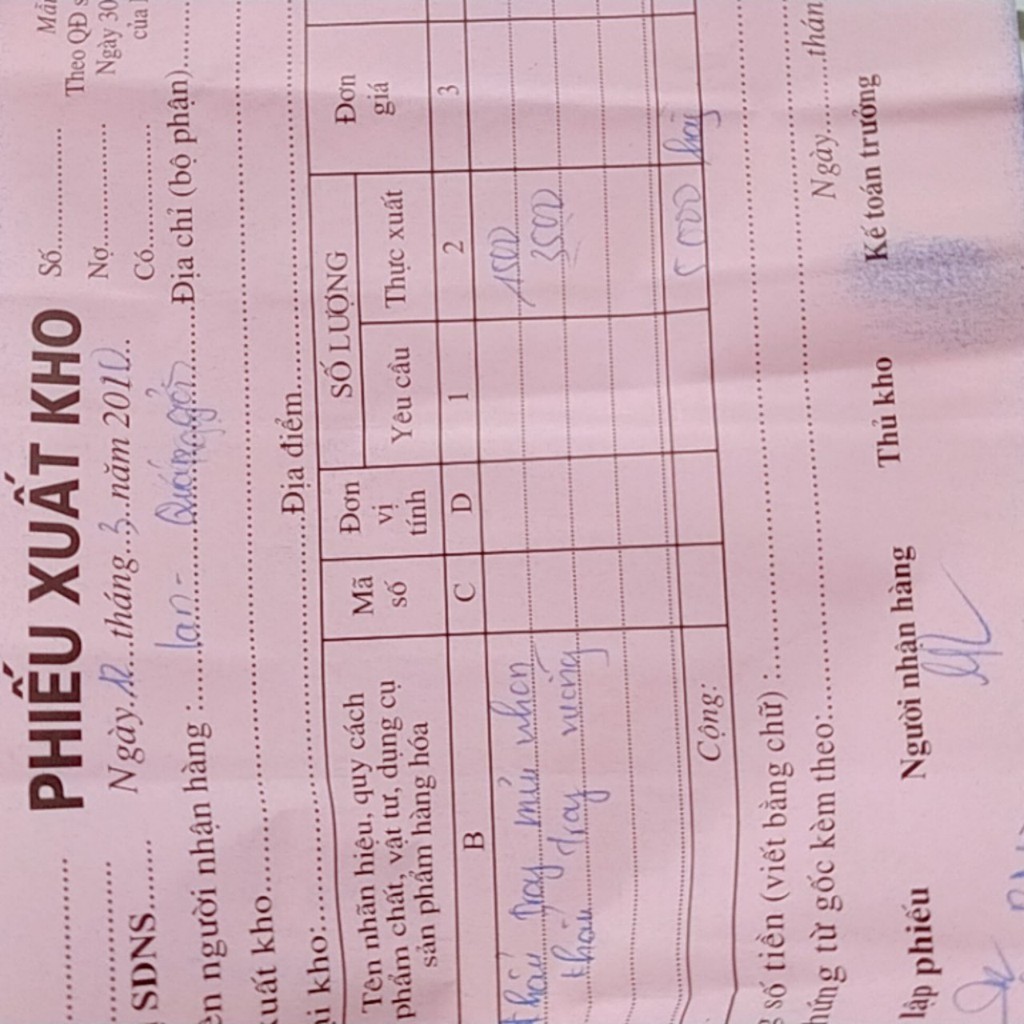 Mẫu
Số........... Theo QĐ s
PHIẾU XUẤT KHO Nợ........... Ngày 30
Ngày 12 tháng 3 năm 2010 Có........... của
SDNS......
ên người nhận hàng : lan - Quảng ngãi Địa chỉ (bộ phận)......
xuất kho......
i kho:......Địa điểm......
Tên nhãn hiệu, quy cách phẩm chất, vật tư, dụng cụ sản phẩm hàng hóa
Mã số
Đơn vị tính
SỐ LƯỢNG
Yêu cầu
Thực xuất
Đơn giá
B C D 1 2 3
thẩu Dray mủ nhon 1500
thẩu Dray vuông 3500
Cộng: 5000
số tiền (viết bằng chữ) :......
hứng từ gốc kèm theo:......
Ngày......thán
lập phiếu Người nhận hàng Thủ kho Kế toán trưởng